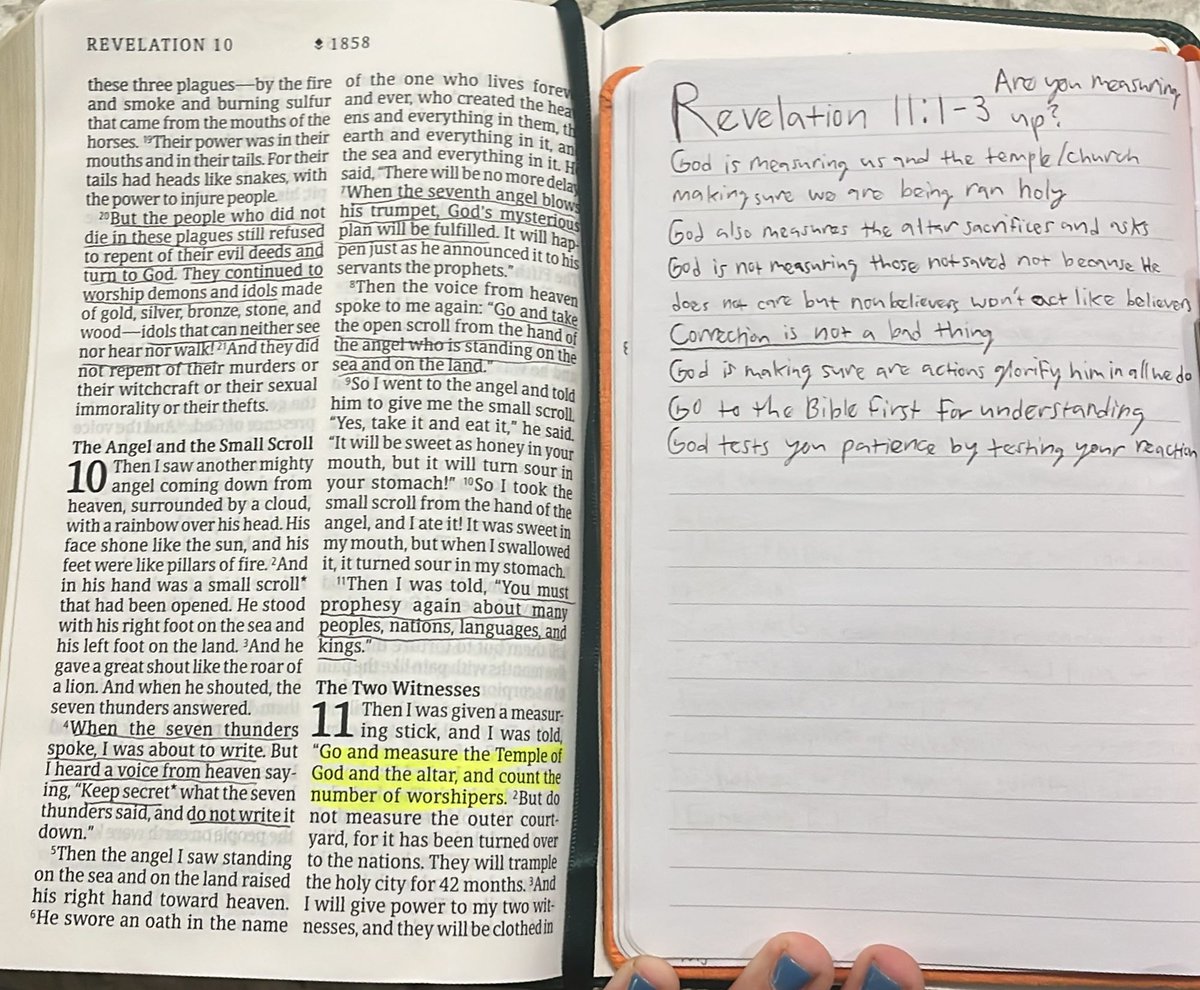 REVELATION 10 1858
these three plagues—by the fire
and smoke and burning sulfur
that came from the mouths of the
horses. 19Their power was in their
mouths and in their tails. For their
tails had heads like snakes, with
the power to injure people.
20But the people who did not
die in these plagues still refused
to repent of their evil deeds and
turn to God. They continued to
worship demons and idols made
of gold, silver, bronze, stone, and
wood—idols that can neither see
nor hear nor walk! 21And they did
not repent of their murders or
their witchcraft or their sexual
immorality or their thefts.
The Angel and the Small Scroll
10 Then I saw another mighty
angel coming down from
heaven, surrounded by a cloud,
with a rainbow over his head. His
face shone like the sun, and his
feet were like pillars of fire. 2And
in his hand was a small scroll*
that had been opened. He stood
with his right foot on the sea and
his left foot on the land. 3And he
gave a great shout like the roar of
a lion. And when he shouted, the
seven thunders answered.
4When the seven thunders
spoke, I was about to write. But
I heard a voice from heaven say-
ing, "Keep secret* what the seven
thunders said, and do not write it
down."
5Then the angel I saw standing
on the sea and on the land raised
his right hand toward heaven.
6He swore an oath in the name
of the one who lives forev
and ever, who created the hea
ens and everything in them, th
earth and everything in it, an
the sea and everything in it. H
said, "There will be no more delay
7When the seventh angel blows
his trumpet, God's mysterious
plan will be fulfilled. It will hap-
pen just as he announced it to his
servants the prophets."
8Then the voice from heaven
spoke to me again: "Go and take
the open scroll from the hand of
the angel who is standing on the
sea and on the land."
9So I went to the angel and told
him to give me the small scroll.
"Yes, take it and eat it," he said.
"It will be sweet as honey in your
mouth, but it will turn sour in
your stomach!" 10So I took the
small scroll from the hand of the
angel, and I ate it! It was sweet in
my mouth, but when I swallowed
it, it turned sour in my stomach.
11Then I was told, "You must
prophesy again about many
peoples, nations, languages, and
kings."
The Two Witnesses
11 Then I was given a measur-
ing stick, and I was told,
"Go and measure the Temple of
God and the altar, and count the
number of worshipers. 2But do
not measure the outer court-
yard, for it has been turned over
to the nations. They will trample
the holy city for 42 months. 3And
I will give power to my two wit-
nesses, and they will be clothed in
Revelation 11:1-3 Are you measuring
up?
God is measuring us and the temple/church
making sure we are being ran holy
God also measures the altar sacrifices and asks
God is not measuring those not saved not because He
does not care but nonbelievers won't act like believers
Correction is not a bad thing
God is making sure are actions glorify him in all we do
Go to the Bible first for understanding
God tests you patience by testing your reaction